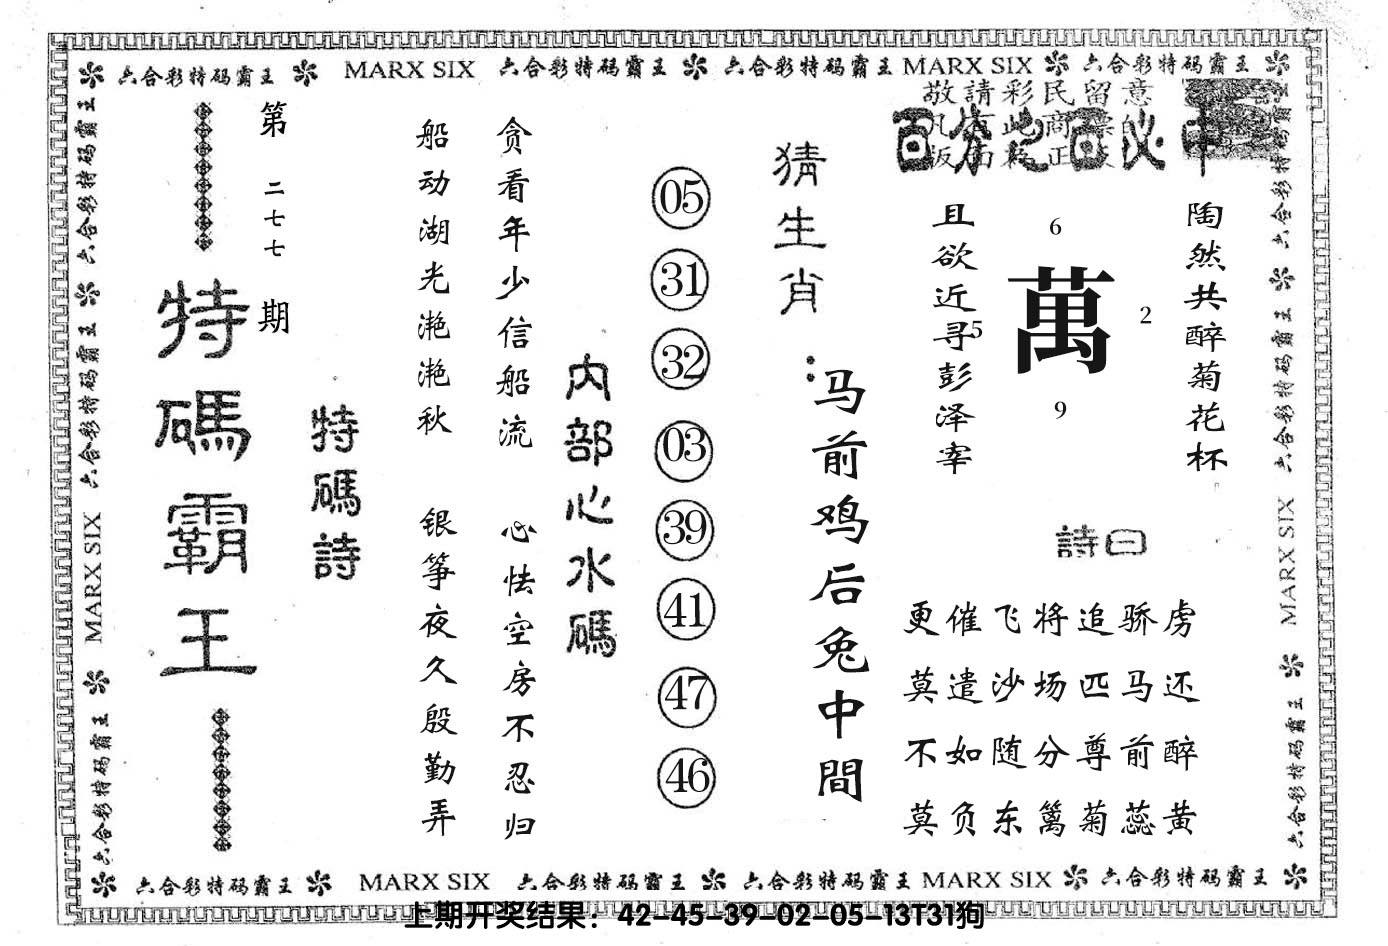 六合彩特码霸王 MARX SIX 六合彩特码霸王 六合彩特码霸王 MARX SIX 六合彩特码霸王
敬請彩民留意
百分之百必中
陶然共醉菊花杯
6
萬
2
5
9
且欲近寻彭泽宰
詩曰
更催飞将追骄虏
莫遣沙场匹马还
不如随分尊前醉
莫负东篱菊蕊黄
猜生肖:
马前鸡后兔中間
05
31
32
03
39
41
47
46
内部心水碼
贪看年少信船流
心怯空房不忍归
船动湖光滟滟秋
银筝夜久殷勤弄
特碼詩
第二七七期
特碼霸王
六合彩特码霸王 六合彩特码霸王 MARX SIX 六合彩特码霸王
六合彩特码霸王 六合彩特码霸王 MARX SIX 六合彩特码霸王
六合彩特码霸王 MARX SIX 六合彩特码霸王 六合彩特码霸王 MARX SIX 六合彩特码霸王
上期开奖结果：42-45-39-02-05-13T31狗